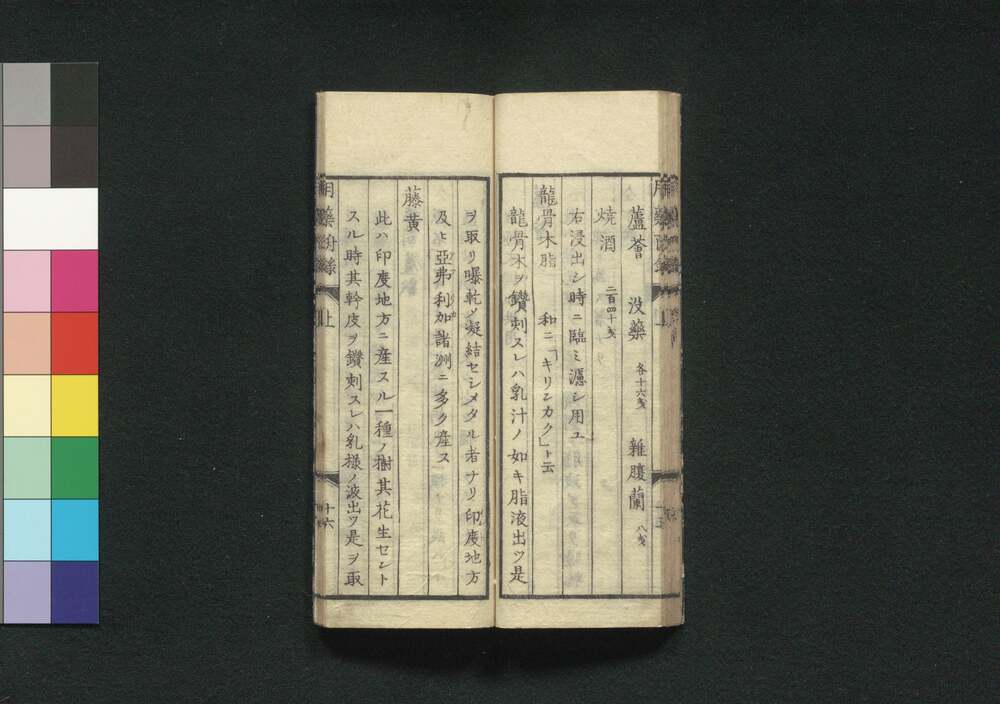 蘆薈　没藥　各十六戔　雜腹蘭　八戔
焼酒　二百四十戔
右浸出シ時ニ臨ミ濾シ用ユ
龍骨木脂　和ニ「キリンカク」ト云
龍骨木ヲ鑽刺スレハ乳汁ノ如キ脂液出ツ是
ヲ取リ曝乾メ凝結セシメタル者ナリ印度地方
及ヒ亞弗利加諸洲ニ多ク産ス
藤黄
此ハ印度地方ニ産スル一種ノ樹其花生セント
スル時其幹皮ヲ鑽刺スレハ乳様ノ液出ツ是ヲ取
上
十六